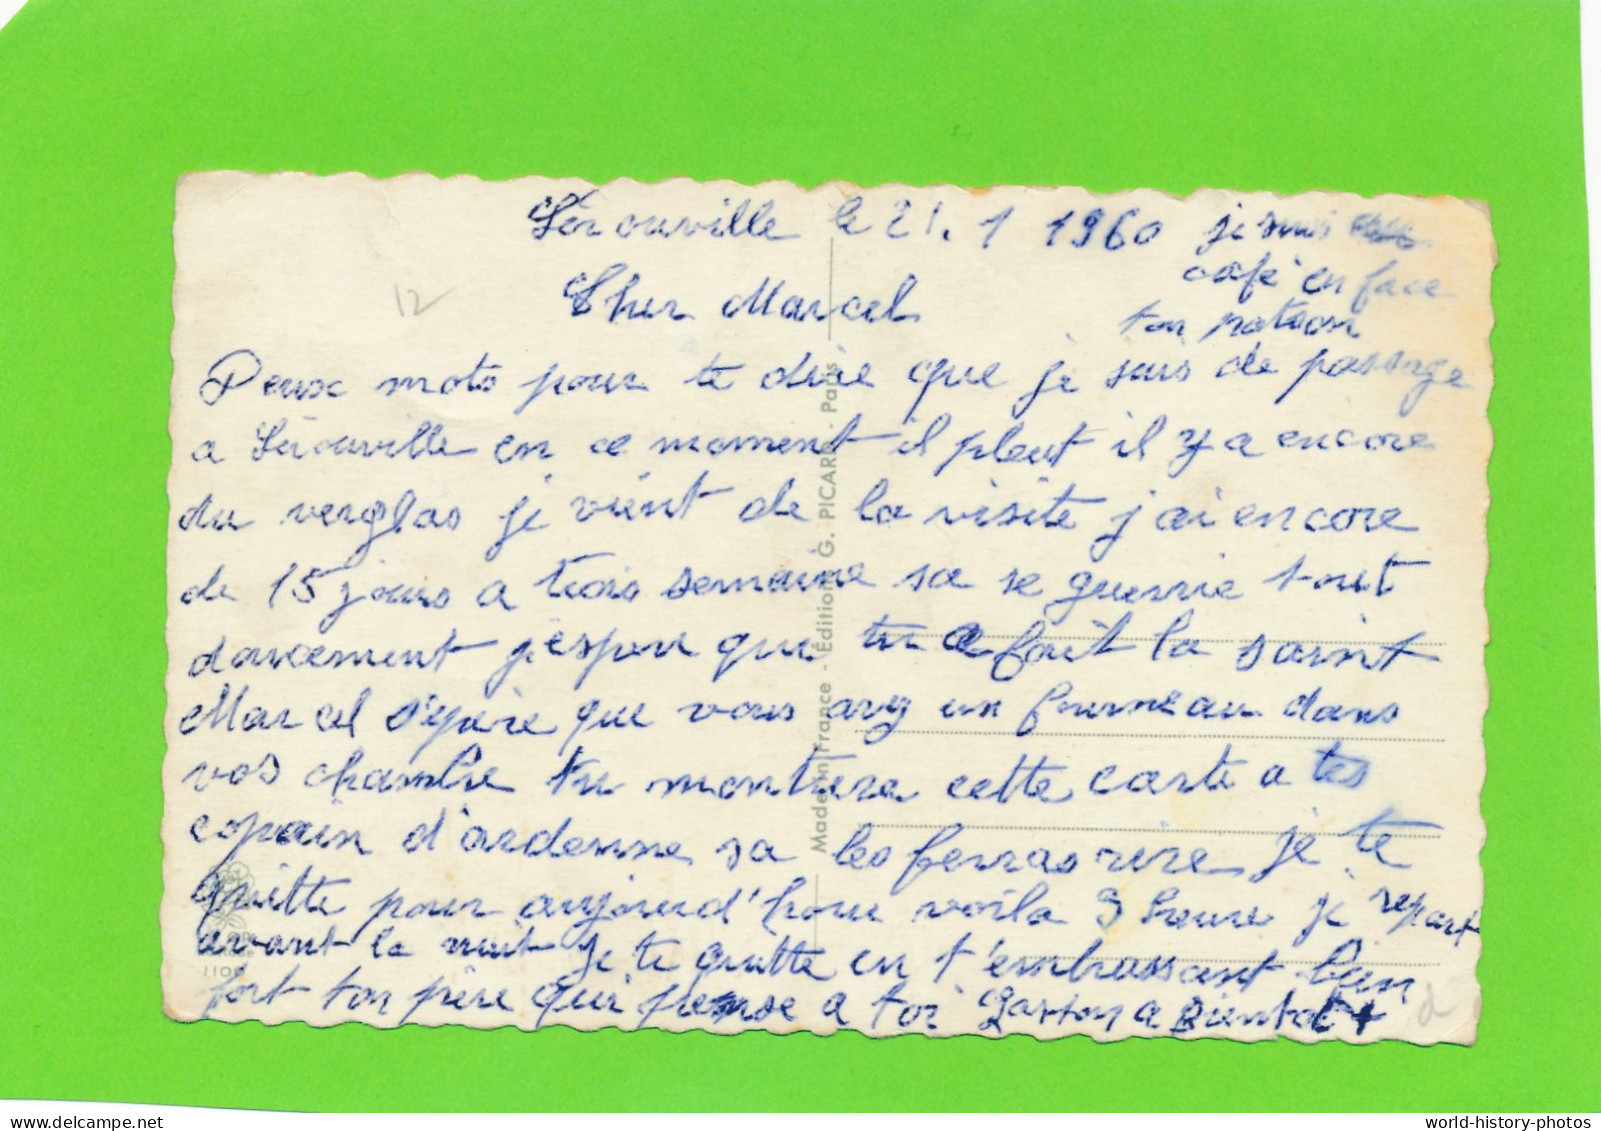 Lérouville le 21. 1 1960
je suis
café en face
ton patron
Cher Marcel
12
Deux mots pour te dire que je suis de passage
a Lérouville en ce moment il pleut il y a encore
du verglas je vient de la visite j'ai encore
de 15 jours a trois semaine sa se guerrie tout
doucement j'espere que tu a fait la saint
Marcel j'espère que vous avy un fourneau dans
vos chambre tu montrera cette carte a tes
copain d'ardenne sa les ferras rire je te
quitte pour aujourd'hour voila 3 heure je repart
avant la nuit je te quitte en t'embrassant bien
fort ton père qui pense a toi Gaston a Bientot +
Made in France - Éditions G. PICARD - Paris
1100
d
world-history-photos
world-history-photos